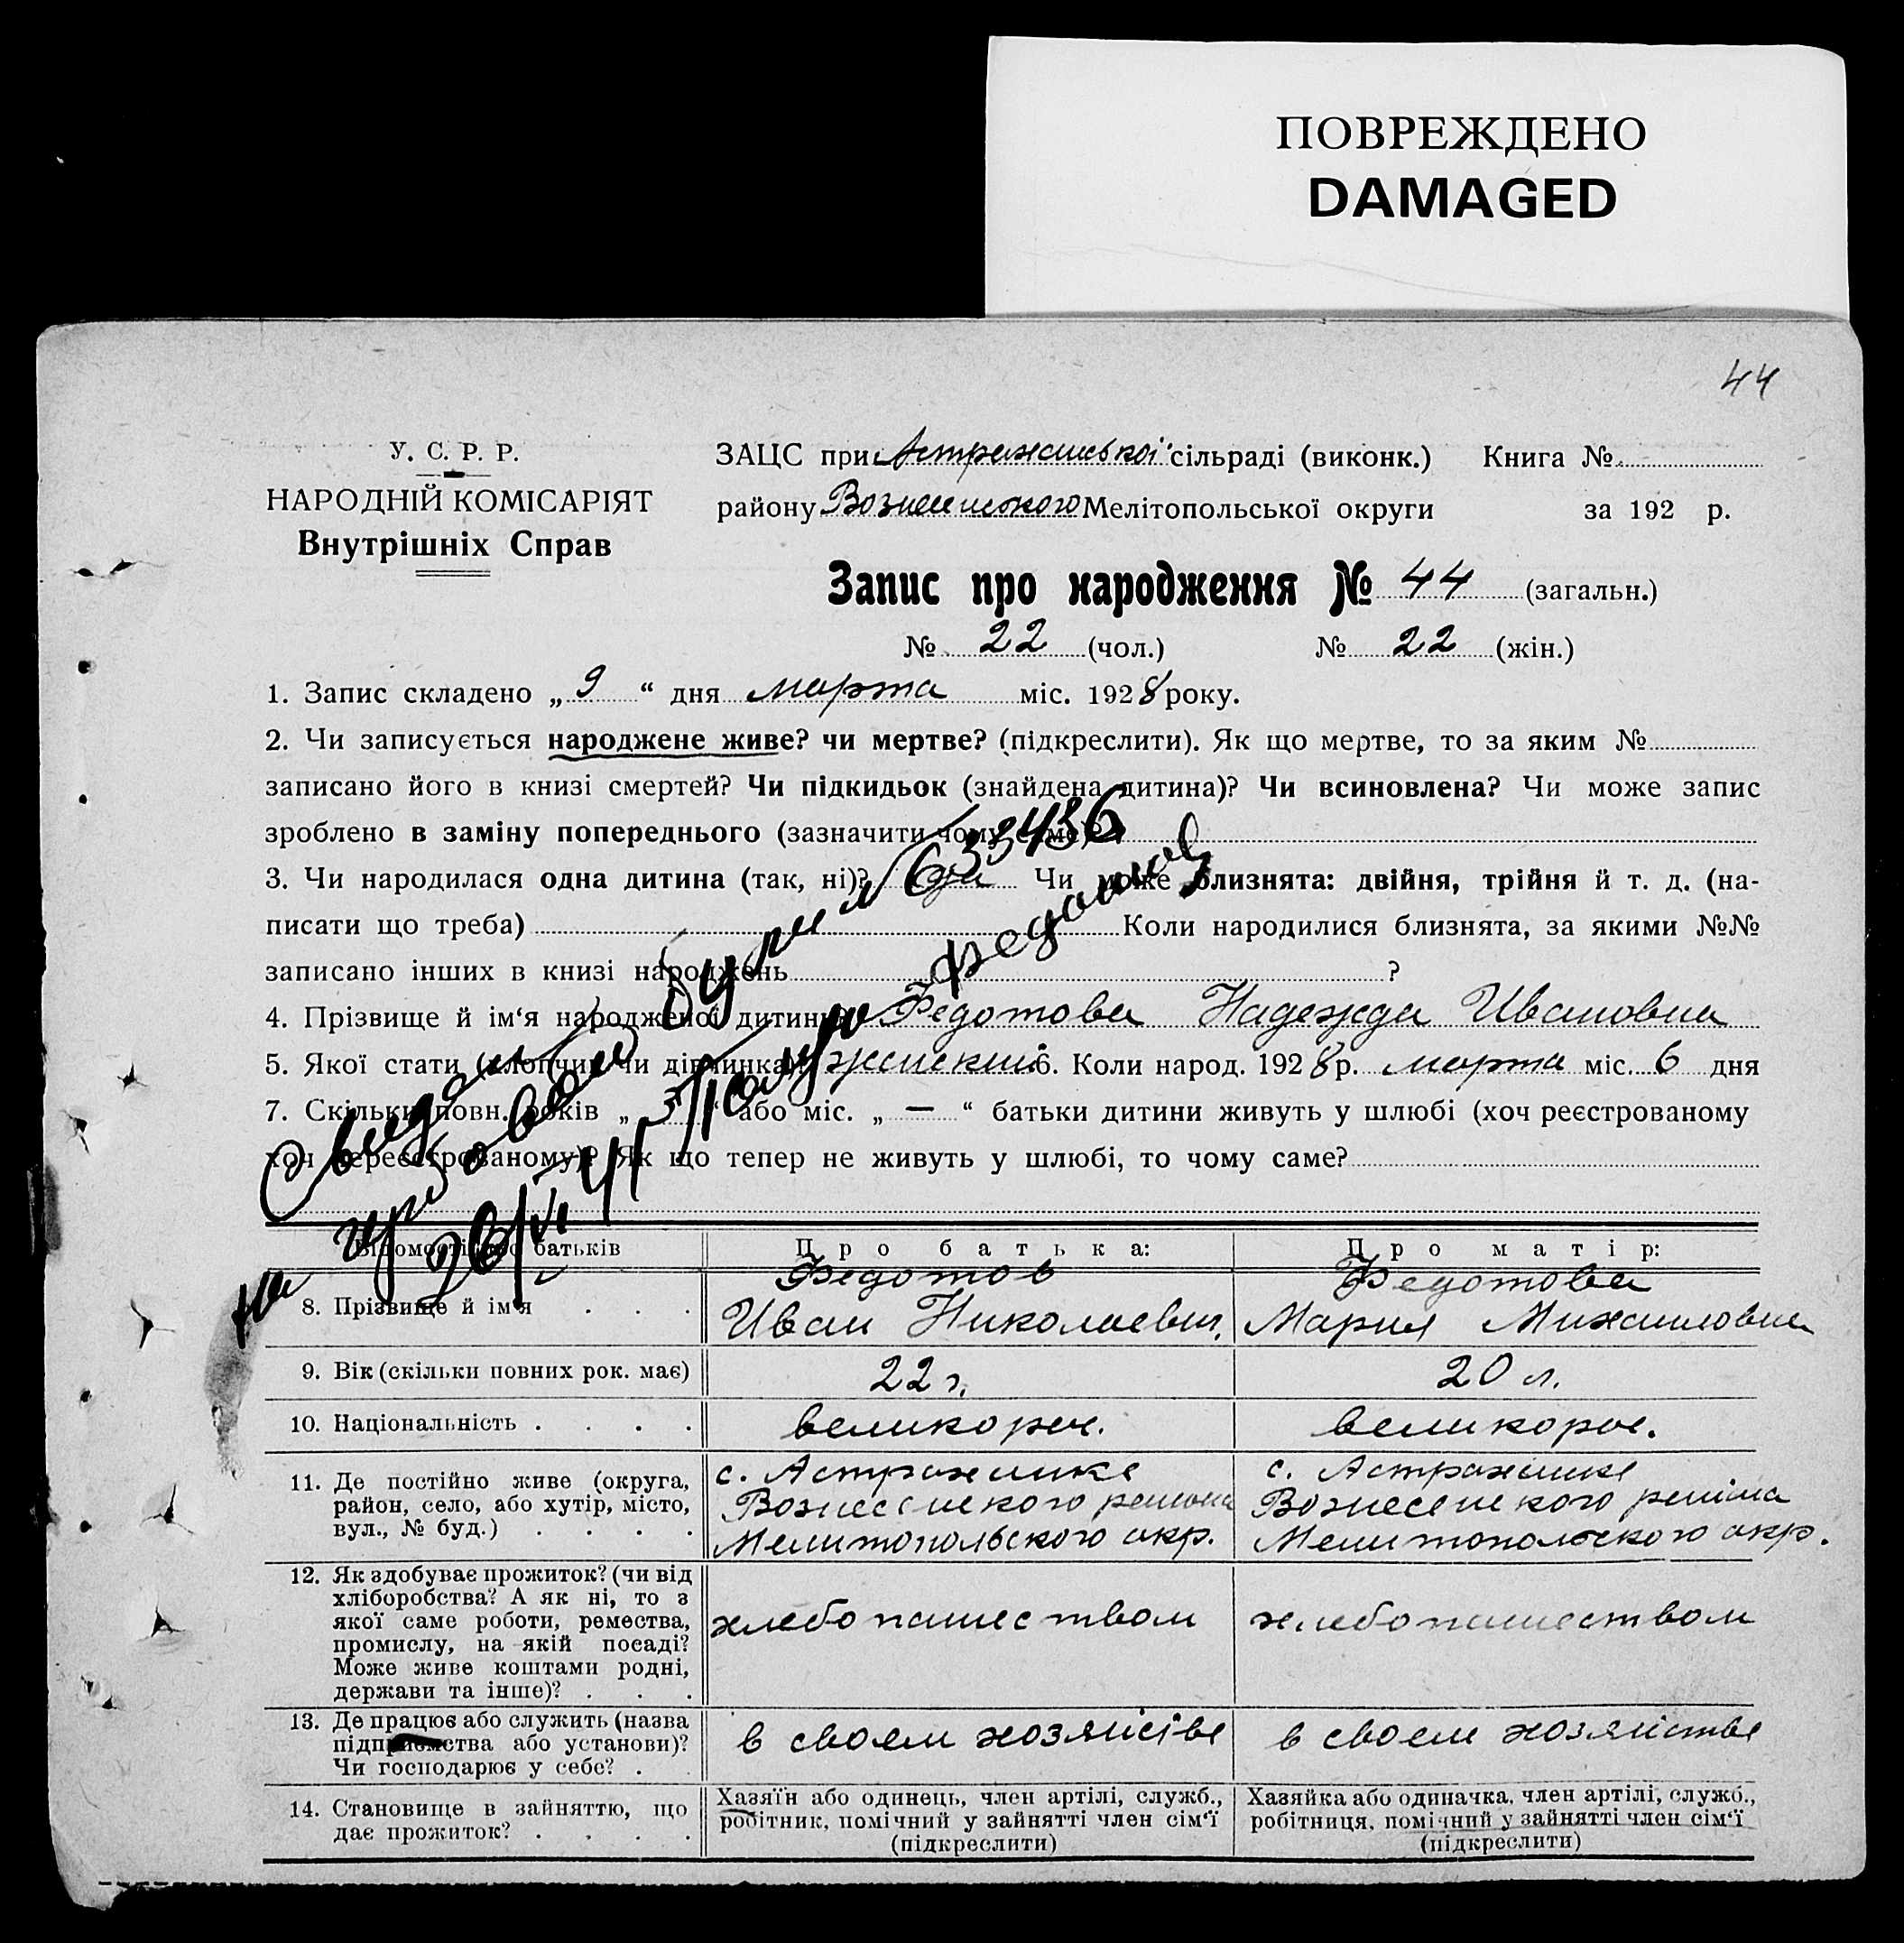 ПОВРЕЖДЕНО
DAMAGED
44
У. С. Р. Р.
НАРОДНІЙ КОМІСАРІЯТ
Внутрішніх Справ
ЗАЦС при Астраханської сільраді (виконк.) Книга №
району Вознесенського Мелітопольської округи за 192 р.
Запис про народження № 44 (загальн.)
№ 22 (чол.) № 22 (жін.)
1. Запис складено „ 9 “ дня марта міс. 1928 року.
2. Чи записується народжене живе? чи мертве? (підкреслити). Як що мертве, то за яким №
записано його в книзі смертей? Чи підкидьок (знайдена дитина)? Чи всиновлена? Чи може запис
зроблено в заміну попереднього (зазначити чому саме)?
3. Чи народилася одна дитина (так, ні)? да Чи може близнята: двійня, трійня й т. д. (на-
писати що треба) Коли народилися близнята, за якими №№
записано інших в книзі народжень ?
4. Прізвище й ім‘я народженої дитини Федотова Надежда Ивановна
5. Якої статі (хлопчик чи дівчинка) женский 6. Коли народ. 1928 р. марта міс. 6 дня
7. Скільки повн. років „ 3 “ або міс. „ — “ батьки дитини живуть у шлюбі (хоч реєстрованому
хоч нереєстрованому)? Як що тепер не живуть у шлюбі, то чому саме?
633436
Получ Федотов
26/VI 41 г
Відомості про батьків П р о б а т ь к а: П р о м а т і р:
8. Прізвище й ім‘я . . . Федотов Иван Николаевич. Федотова Мария Михаиловна
9. Вік (скільки повних рок. має) 22 г. 20 л.
10. Національність . . . . великорос. великорос.
11. Де постійно живе (округа, район, село, або хутір, місто, вул., № буд.) . . . .
с. Астраханка
Вознесенского района
Мелитопольского окр.
с. Астраханка
Вознесенского района
Мелитопольского окр.
12. Як здобуває прожиток? (чи від
хліборобства? А як ні, то з
якої саме роботи, ремества,
промислу, на якій посаді?
Може живе коштами родні,
держави та інше)? . . .
хлебопашеством хлебопашеством
13. Де працює або служить (назва
підприємства або установи)?
Чи господарює у себе? .
в своем хозяйстве в своем хозяйстве
14. Становище в зайняттю, що
дає прожиток? . . . .
Хазяїн або одинець, член артілі, служб.,
робітник, помічний у зайнятті член сім‘ї
(підкреслити)
Хазяйка або одиначка, член артілі, служб.,
робітниця, помічний у зайнятті член сім‘ї
(підкреслити)